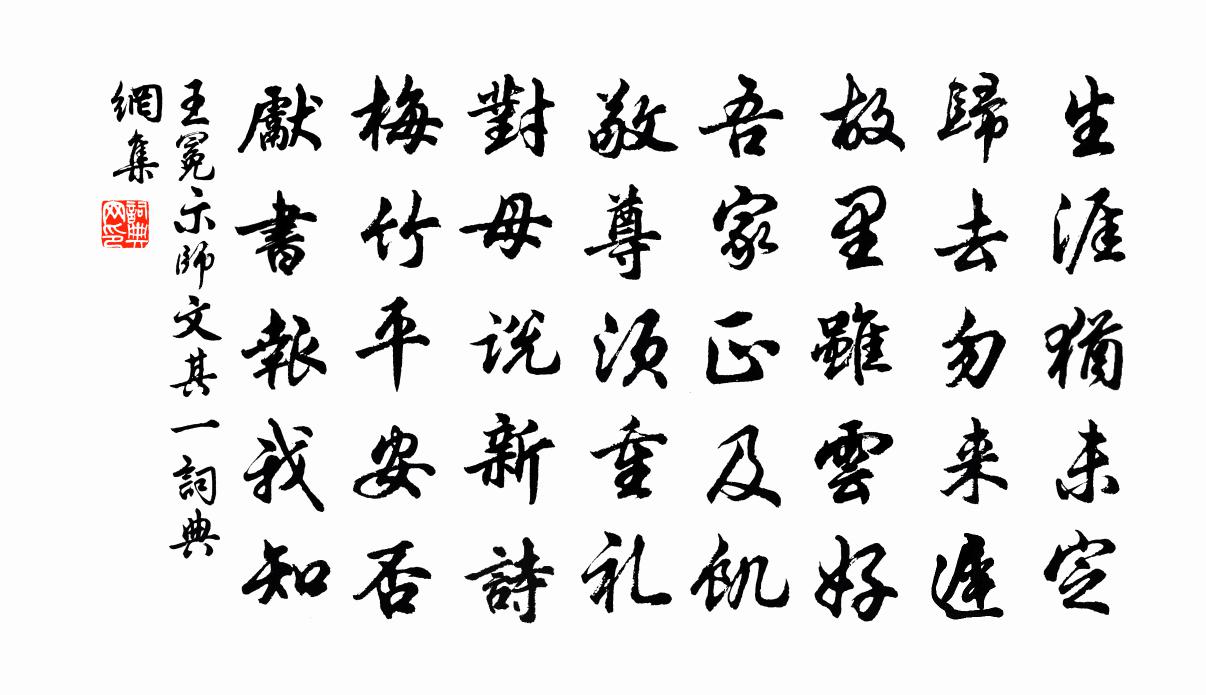 生涯猶未定
歸去勿来遲
故里雖雲好
吾家正及飢
敬尊須重礼
對母説新詩
梅竹平安否
獻書報我知
王冕示師文其一詞典
網集
詞典網印